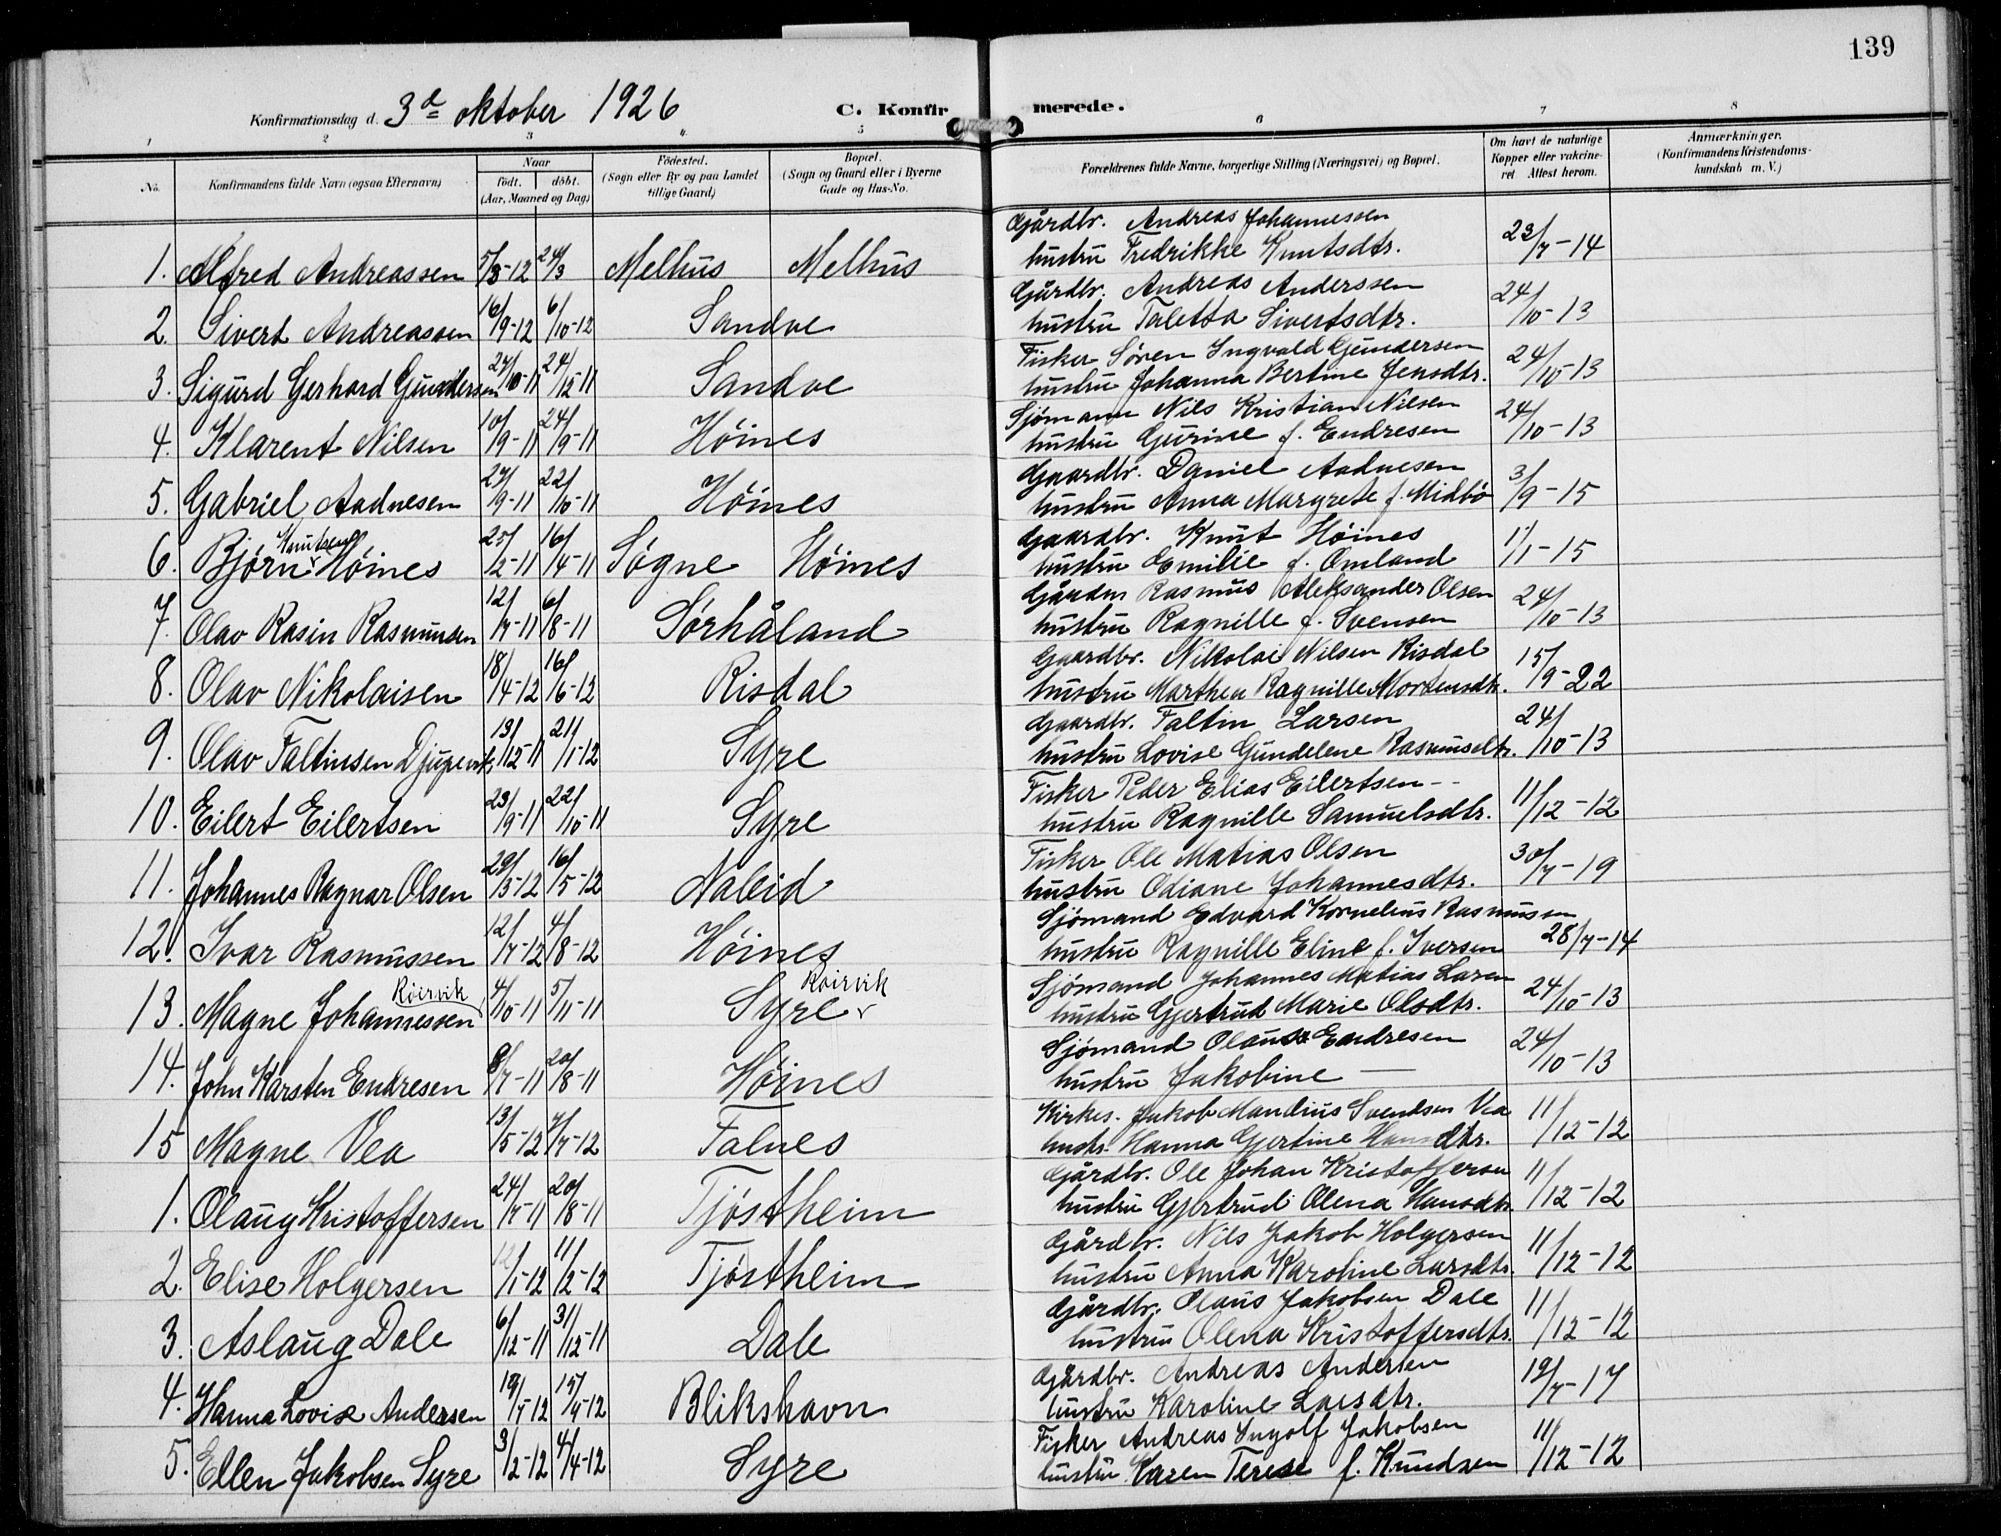 139
Konfirmationsdag d. 3d oktober 1926 C. Konfirmerede.
1 2 3 4 5 6 7 8
No. Konfirmandens fulde Navn (ogsaa Efternavn) Naar födt. döbt. (Aar, Maaned og Dag) Födested. (Sogn eller By og paa Landet tillige Gaard) Bopæl. (Sogn og Gaard eller i Byerne Gade og Hus-No. Forældrenes fulde Navne, borgerlige Stilling (Næringsvei) og Bopæl. Om havt de naturlige Kopper eller vakcineret Attest herom. Anmærkninger. (Konfirmandens Kristendomskundskab m. V.)
Gårdbr. Andreas Johannessen
1. Alfred Andreassen 5/3-12 24/3 Melhus Melhus hustru Fredrikke Knutsdtr. 23/7-14
Gårdbr. Andreas Anderssen
2. Sivert Andreassen 16/9-12 6/10-12 Sandve hustru Taletta Sivertsdtr. 24/10-13
Fisker Søren Ingvald Gundersen
3. Sigurd Gerhard Gundersen 27/10-11 24/12-11 Sandve hustru Johanna Bertine Jensdtr. 24/10-13
Sjömann Nils Kristian Nilsen
4. Klarent Nilsen 10/9-11 24/9-11 Höines hustru Gurine f. Endresen 24/10-13
Gaardbr. Daniel Aadnesen
5. Gabriel Aadnesen 27/9-11 22/10-11 Höines hustru Anna Margrete f. Midbö 3/9-15
Gaardbr. Knut Höines
6. Björn Knutsen Höines 25/2-11 16/4-11 Søgne Höines hustru Emilie f. Omland 11/1-15
Rasmus Aleksander Olsen
7. Olav Rasin Rasmussen 12/7-11 6/8-11 Sørhåland hustru Ragnille f. Svensen 24/10-13
Gaardbr. Nikolai Nilsen Risdal
8. Olav Nikolaisen 18/4-12 16/6-12 Risdal hustru Marthea Ragnille Mortensdtr. 15/9-22
Gaardbr. Faltin Larsen
9. Olav Faltinsen Djupevik 13/12-11 21/1-12 Syre hustru Lovise Gundelene Rasmusdtr. 24/10-13
Fisker Peder Elias Eilertsen
10. Eilert Eilertsen 23/9-11 22/10-11 Syre hustru Ragnille Samuelsdtr. 11/12-12
Fisker Ole Matias Olsen
11. Johannes Ragnar Olsen 29/3-12 16/5-12 Naleid hustru Odiane Johannesdtr. 30/7-19
Sjömand Edvard Kornelius Rasmussen
12. Ivar Rasmussen 12/7-12 4/8-12 Höines hustru Ragnille Eline f. Iversen 28/7-14
Sjömand Johannes Matias Larsen
13. Magne Johannessen Röirvik 4/10-11 5/11-11 Syre Röirvik hustru Gjertrud Marie Olsdtr. 24/10-13
Sjömand Olaus Endresen
14. John Karsten Endresen 8/7-11 20/8-11 Höines hustru Jakobine — 24/10-13
Kirkes. Jakob Mandius Svendsen Vea
15 Magne Vea 13/5-12 7/7-12 Falnes hustr. Hanna Gjertine Hansdtr. 11/12-12
Gårdbr. Ole Johan Kristoffersen
1. Olaug Kristoffersen 24/7-11 20/8-11 Tjöstheim hustru Gjertrud Olena Hansdtr. 11/12-12
Gårdbr. Nils Jakob Holgersen
2. Elise Holgersen 12/1-12 11/2-12 Tjöstheim hustru Anna Karoline Larsdtr. 11/12-12
Gårdbr. Olaus Jakobsen Dale
3. Aslaug Dale 6/12-11 31/12-11 Dale hustru Olena Kristoffersdtr. 11/12-12
Gårdbr. Andreas Andersen
4. Hanna Lovise Andersen 19/7-12 15/9-12 Blikshavn hustru Karoline Larsdtr. 19/7-17
Fisker Andreas Ingolf Jakobsen
5. Ellen Jakobsen Syre 3/2-12 4/4-12 Syre hustru Karen Terese f. Knudsen 11/12-12